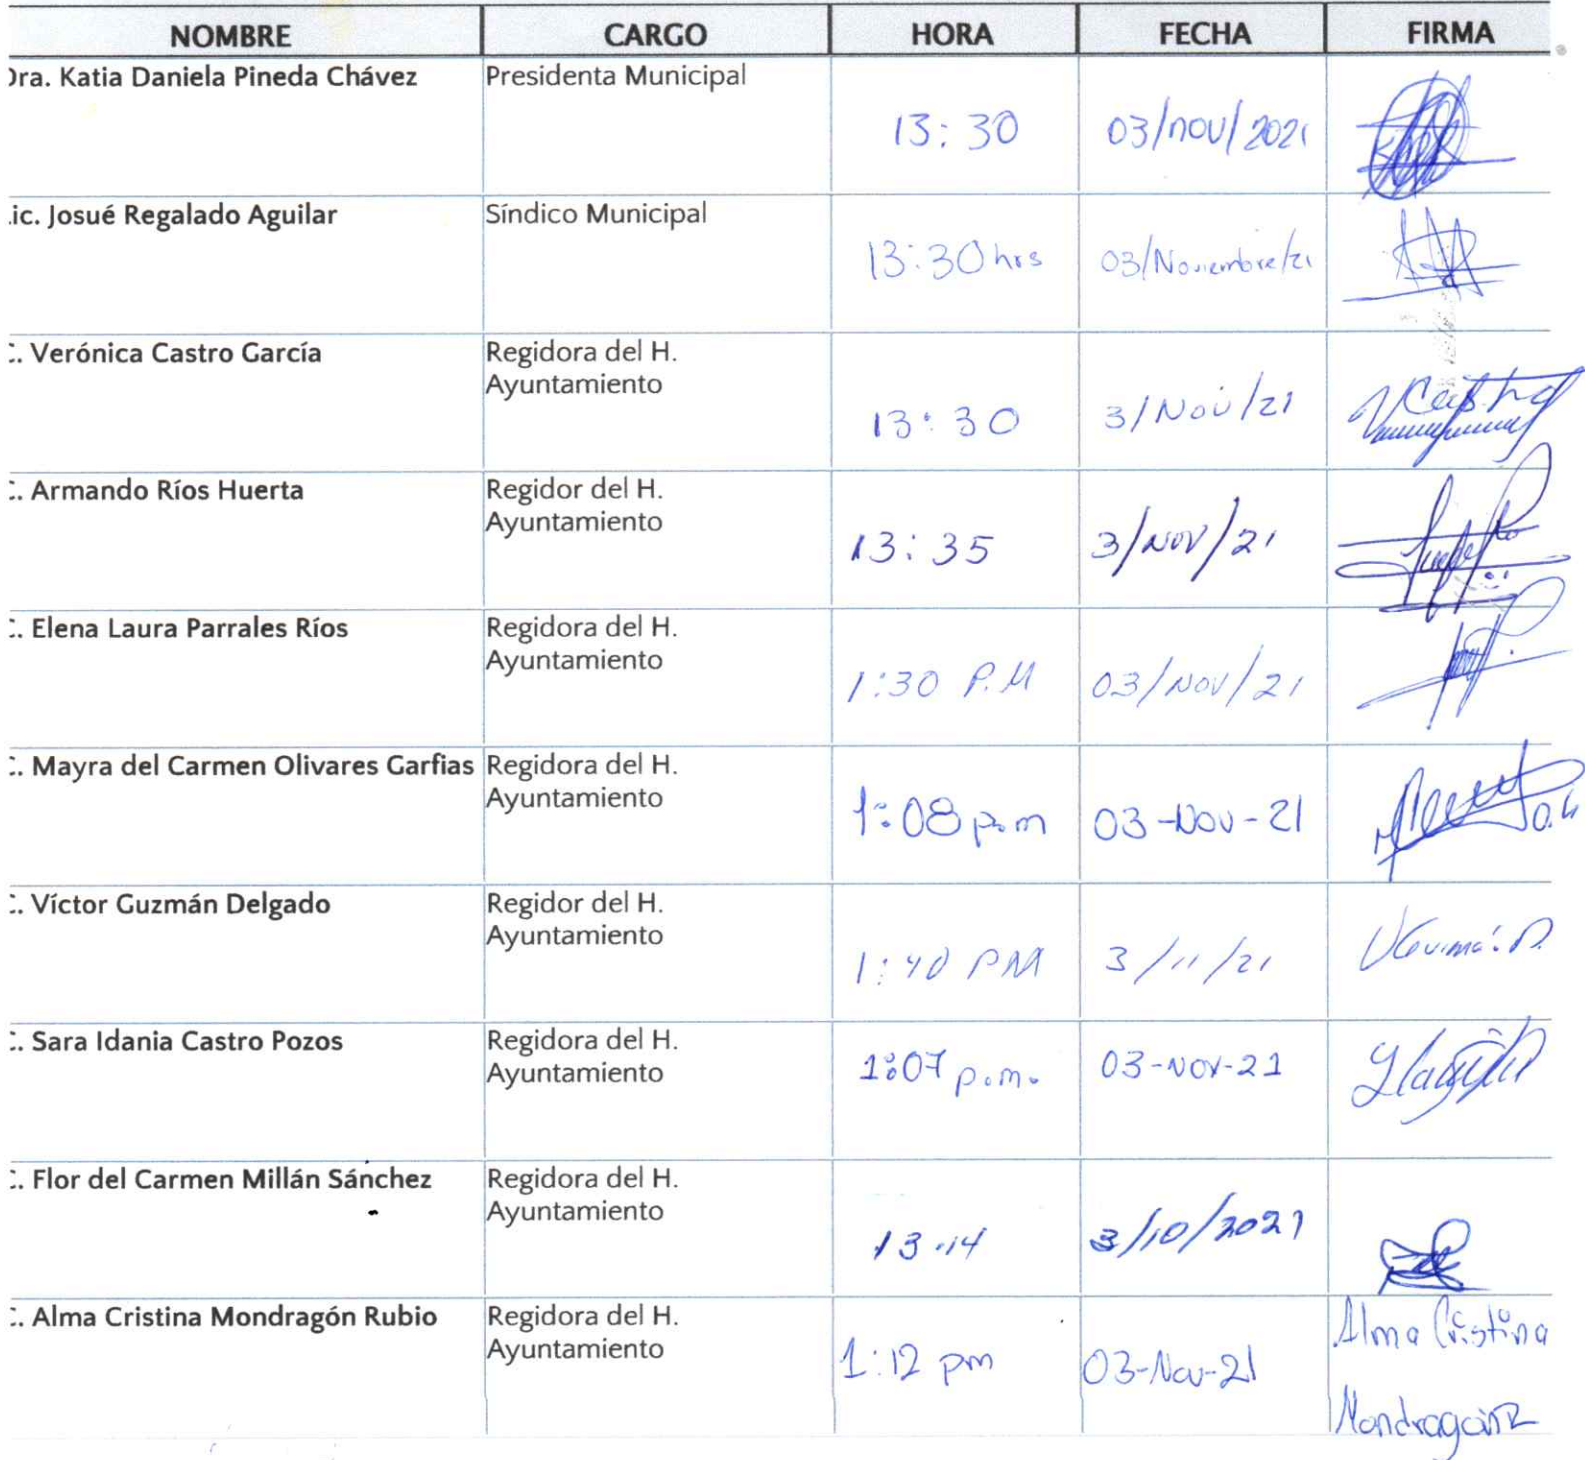 NOMBRE CARGO HORA FECHA FIRMA
Dra. Katia Daniela Pineda Chávez Presidenta Municipal
13:30 03/nov/2021
Lic. Josué Regalado Aguilar Síndico Municipal
13:30 hrs 03/Noviembre/21
C. Verónica Castro García Regidora del H.
Ayuntamiento
13:30 3/Nov/21 VCastro
C. Armando Ríos Huerta Regidor del H.
Ayuntamiento
13:35 3/NOV/21
C. Elena Laura Parrales Ríos Regidora del H.
Ayuntamiento
1:30 P.M 03/NOV/21
C. Mayra del Carmen Olivares Garfias Regidora del H.
Ayuntamiento
1:08 p.m 03-Nov-21
C. Víctor Guzmán Delgado Regidor del H.
Ayuntamiento
1:40 PM 3/11/21
C. Sara Idania Castro Pozos Regidora del H.
Ayuntamiento
1:07 p.m. 03-NOV-21
C. Flor del Carmen Millán Sánchez Regidora del H.
Ayuntamiento
13.14 3/10/2021
C. Alma Cristina Mondragón Rubio Regidora del H.
Ayuntamiento
1:12 pm 03-Nov-21 Alma Cristina
Mondragón R